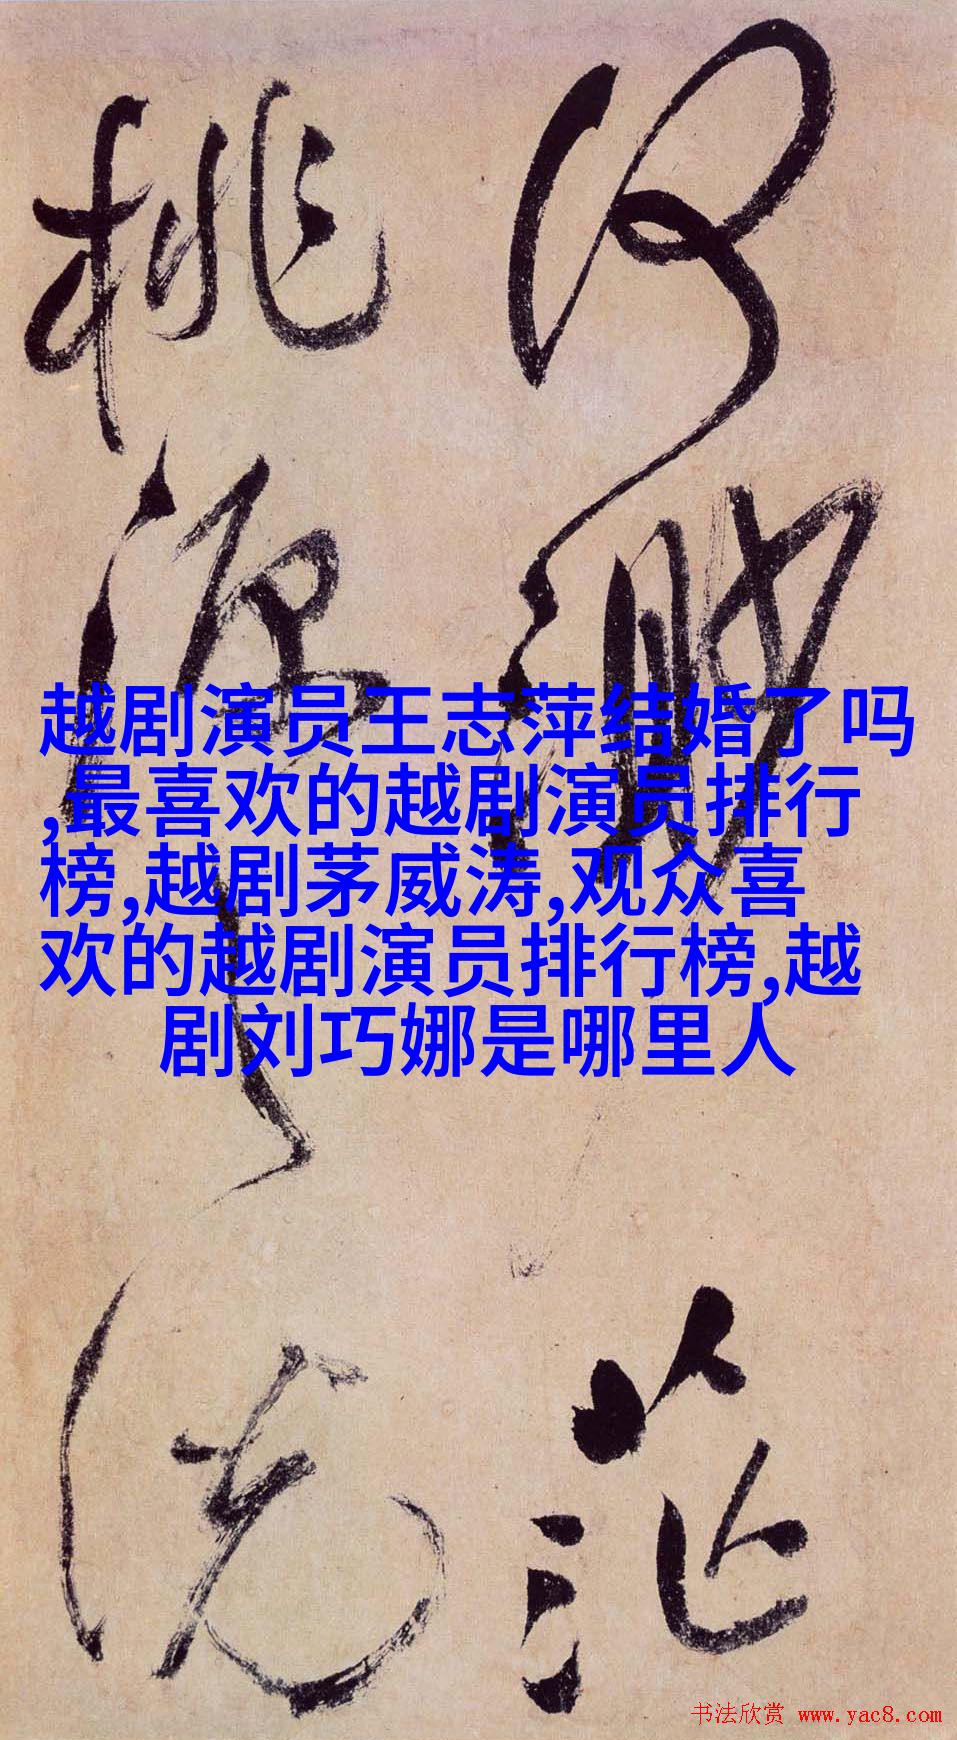 何渺茫
桃源之说
越剧演员王志萍结婚了吗
,最喜欢的越剧演员排行
榜,越剧茅威涛,观众喜
欢的越剧演员排行榜,越
剧刘巧娜是哪里人
书法欣赏 www.yac8.com